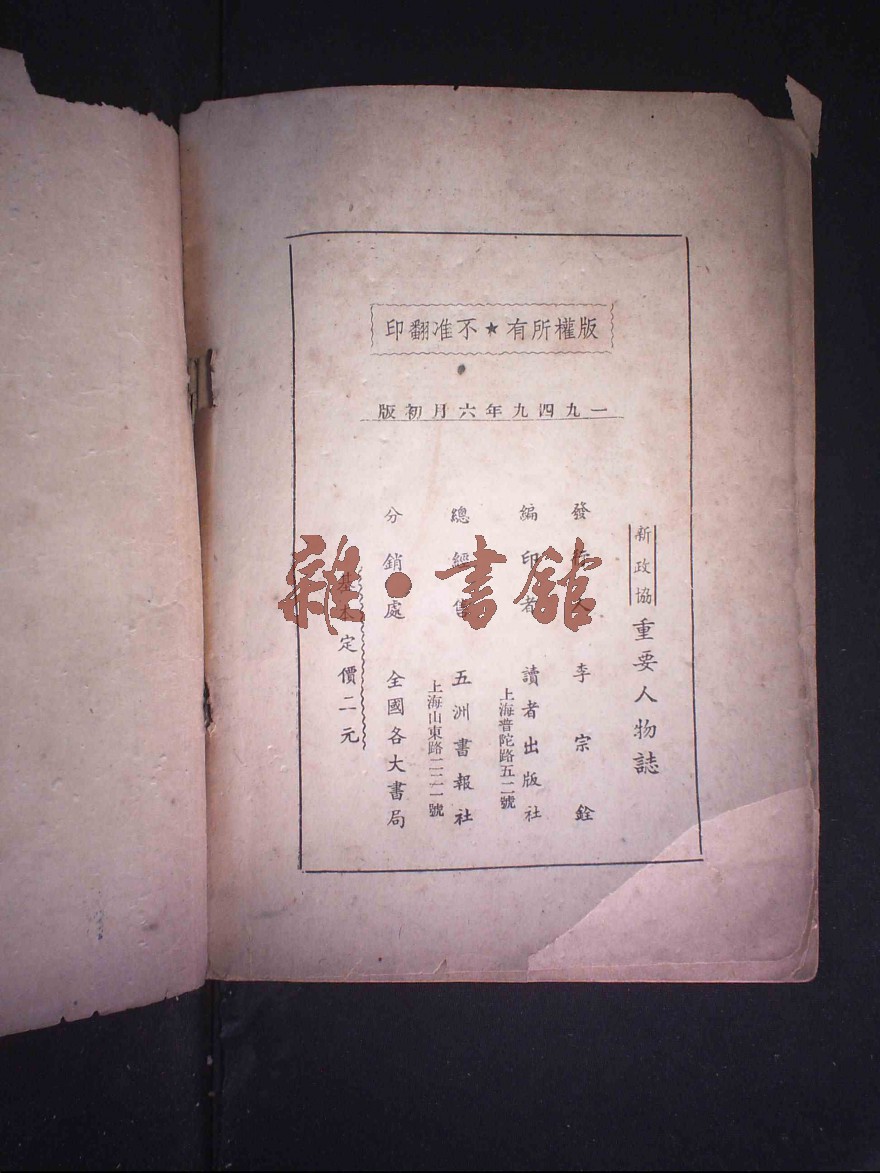 版權所有★不准翻印
一九四九年六月初版
新政協
重要人物誌
發行人 李宗銓
編印者 讀者出版社
上海普陀路五二號
總經售 五洲書報社
上海山東路二二一號
分銷處 全國各大書局
基本定價二元
雜·書館